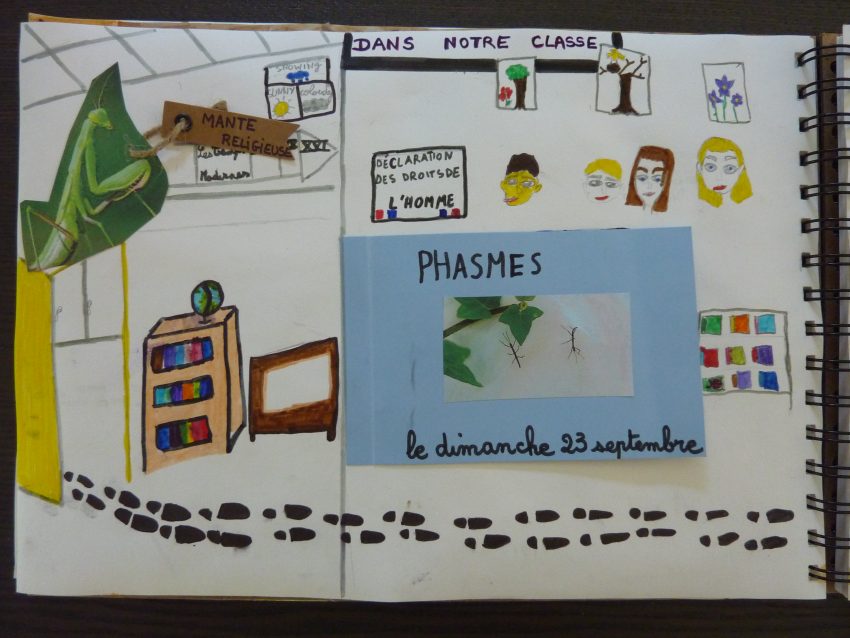 DANS NOTRE CLASSE
SHOWING
SUNNY
clouds
MANTE
RELIGIEUSE
XVI
Les temps
Modernes
DÉCLARATION
DES DROITS DE
L'HOMME
PHASMES
le dimanche 23 septembre